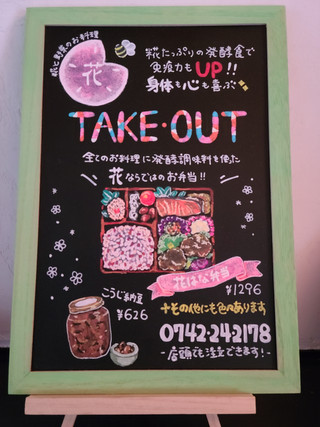 糀と野菜のお料理
花
糀たっぷりの発酵食で
免疫力もUP!!
身体も心も喜ぶ
TAKE・OUT
全てのお料理に発酵調味料を使った
花ならではのお弁当!!
花はな弁当
¥1296
こうじ納豆
¥626
+その他にも色々あります
0742-24-2178
-店頭でも注文できます!-